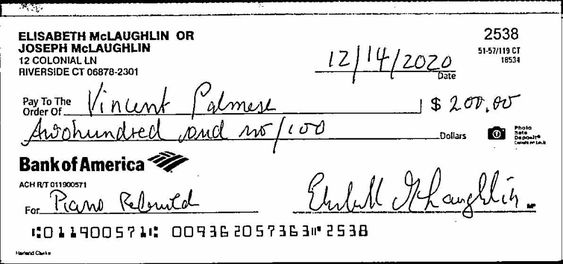 ELISABETH McLAUGHLIN OR
JOSEPH McLAUGHLIN
12 COLONIAL LN
RIVERSIDE CT 06878-2301
2538
51-57/119 CT
18534
12/14/2020
Date
Pay To The
Order Of Vincent Palmese $ 200.00
Twohundred and no/100 Dollars
Photo
Safe
Deposit®
Details on back
Bank of America
ACH R/T 011900571
For Piano Rebuild Elisabeth McLaughlin MP
⑆011900571⑆ 009362057363⑈2538
Harland Clarke